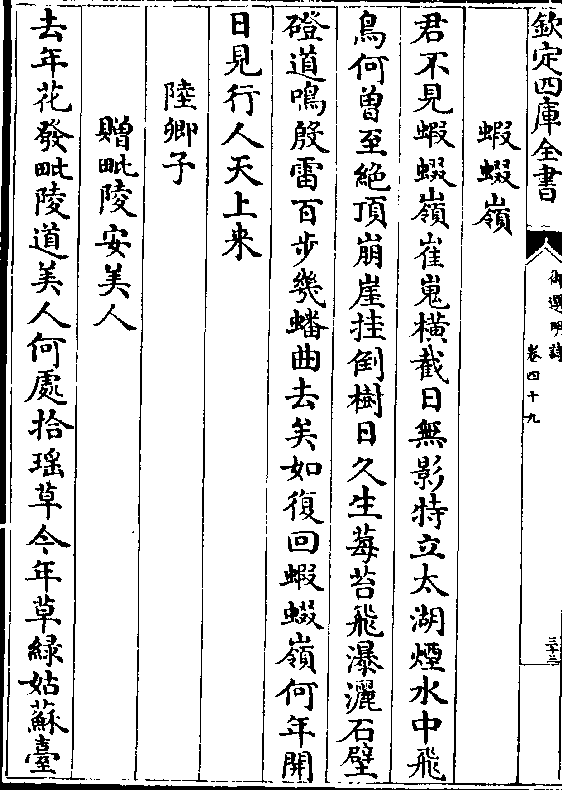 欽定四庫全書
御選明詩
卷四十九
三十三
蝦蝃嶺
君不見蝦蝃嶺崔嵬橫截日無影特立太湖煙水中飛
鳥何曽至絶頂崩崖挂倒樹日久生莓苔飛瀑灑石壁
磴道鳴殷雷百步幾蟠曲去矣如復回蝦蝃嶺何年開
日見行人天上来
陸卿子
贈毗陵安美人
去年花發毗陵道美人何處拾瑶草今年草緑姑蘇臺